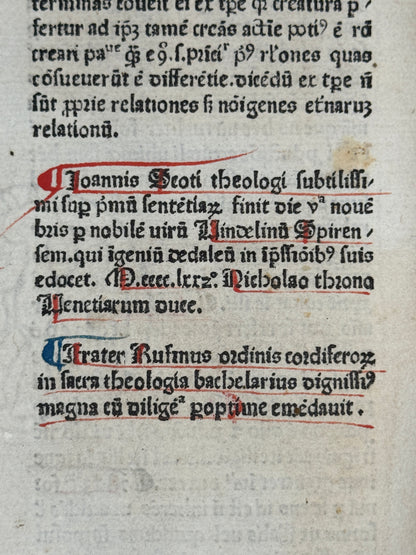 terminas coueit ei ex tꝑe qr creatura ꝑ
fertur ad ipꝫ tamē creās actiē poti⁹ ē rō
creari paᵘᵉ qꝫ e⁹.s.pricĩ p⁹ rlones quas
cōsueuerūt ē differētie.dicēdū ex tꝑe ñ
sūt ꝓprie relationes ſꝫ nōigenes etnaruꝫ
relationū.
Joannis Scoti theologi subtilissi-
mi suꝑ pʳmū sentētiaꝝ finit die vᵃ nouē
bris ꝑ nobilē uirū Uindelinū Spiren-
sem.qui igeniū dedaleū in ip̄ssiōib⁹ suis
edocet. M.cccc.lxxꝛᵒ. Nicholao throno
Uenetiarum duce.
Frater Rufinus ordinis cordiferoꝝ
in sacra theologia bachelarius dignissi⁹
magna cū diligēᵃ ꝑoptīne emēdauit.